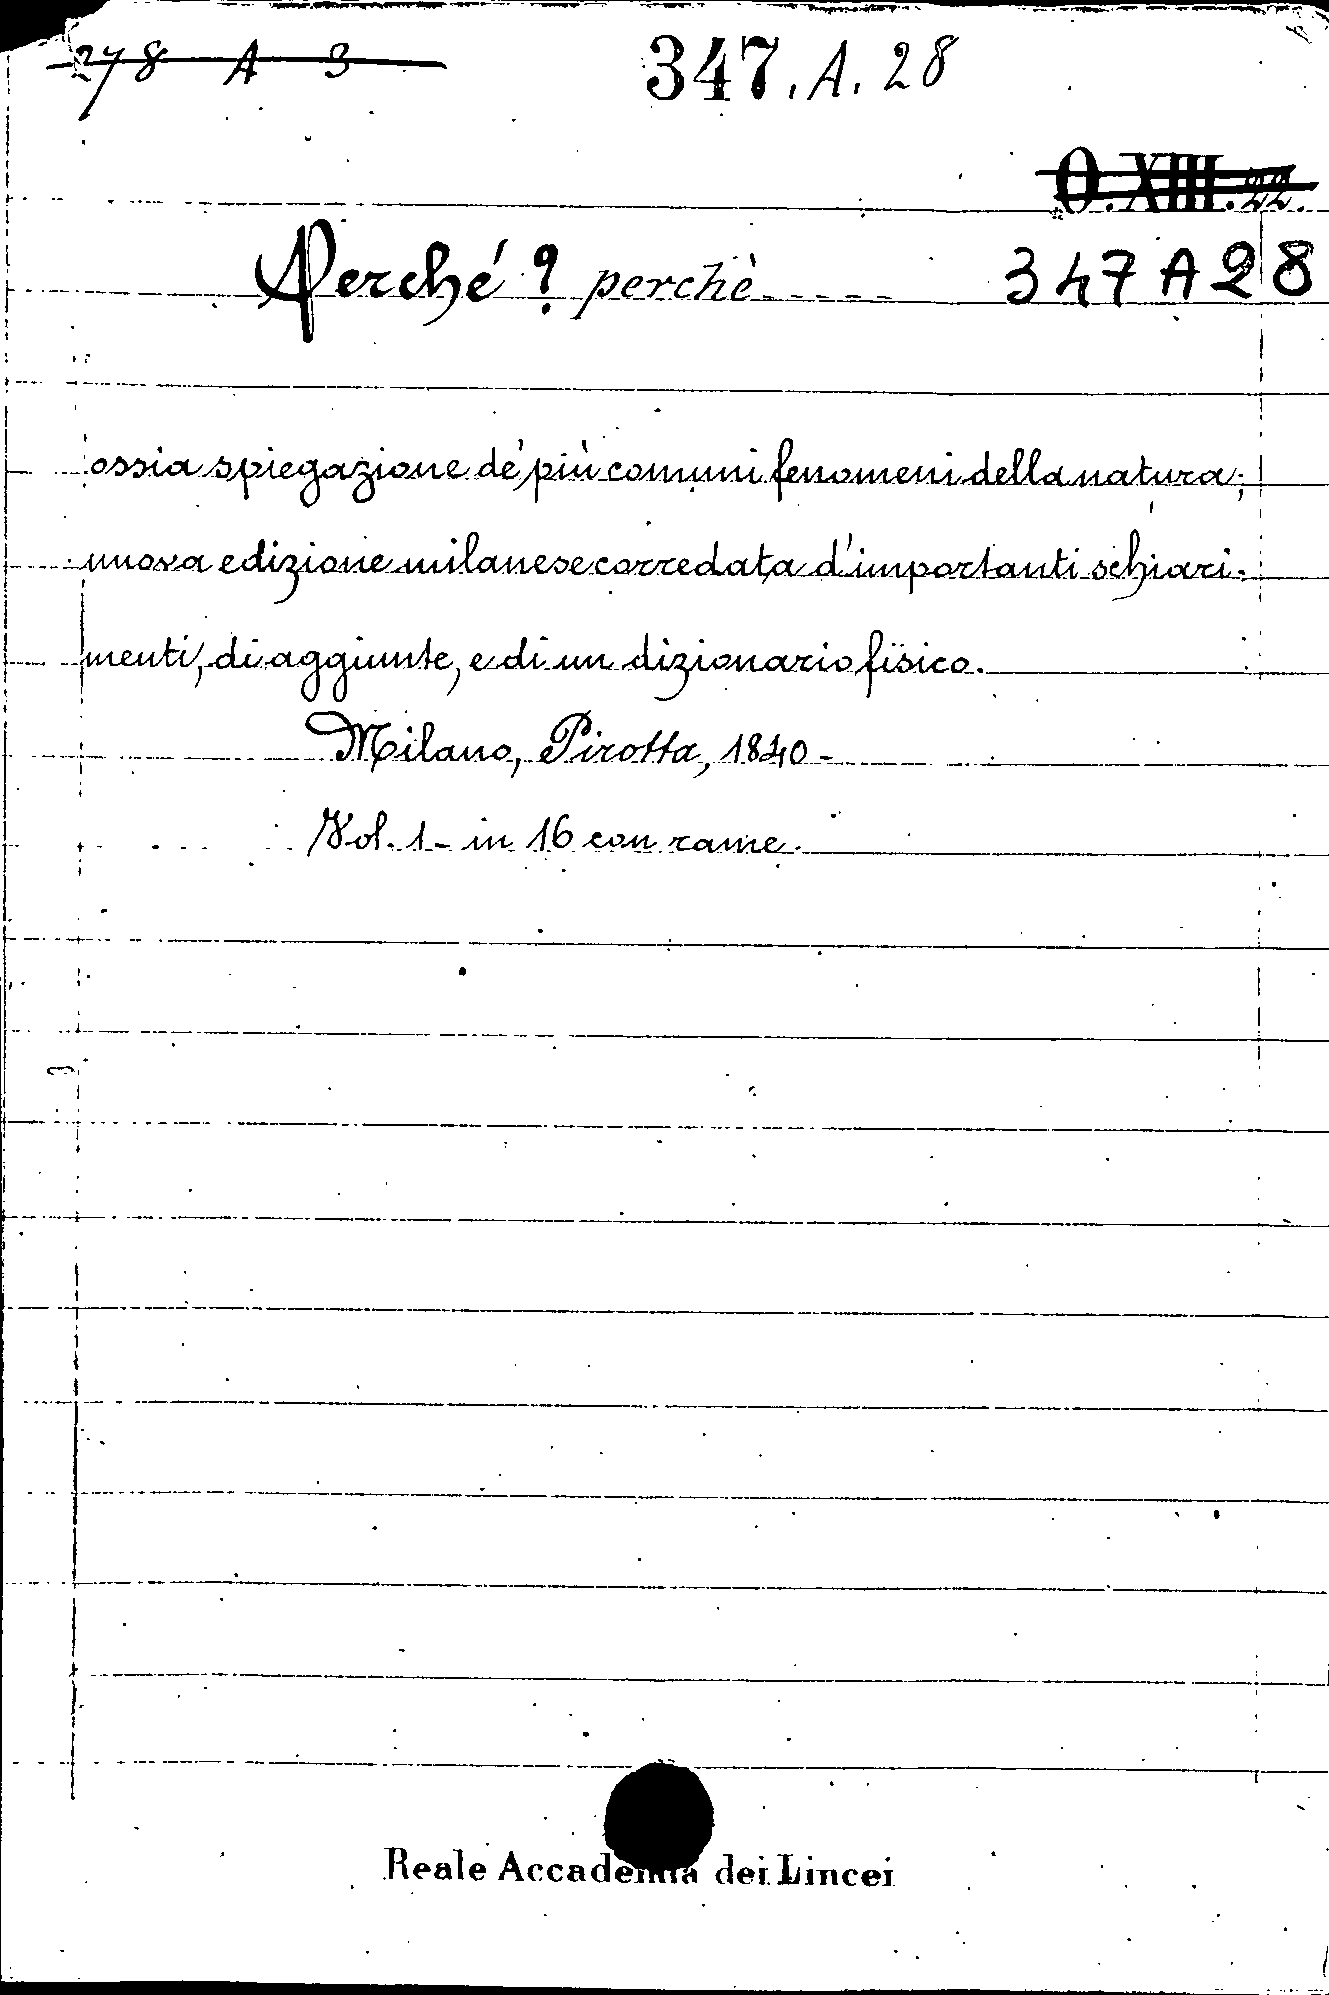 278 A 3
347. A. 28
O. XIII. 22.
Perché? perchè
347 A 28
ossia spiegazione de' più comuni fenomeni della natura;
nuova edizione milanese corredata d'importanti schiari-
menti, di aggiunte, e di un dizionario fisico.
Milano, Pirotta, 1840 -
Vol. 1 - in 16 con rame.
Reale Accademia dei Lincei